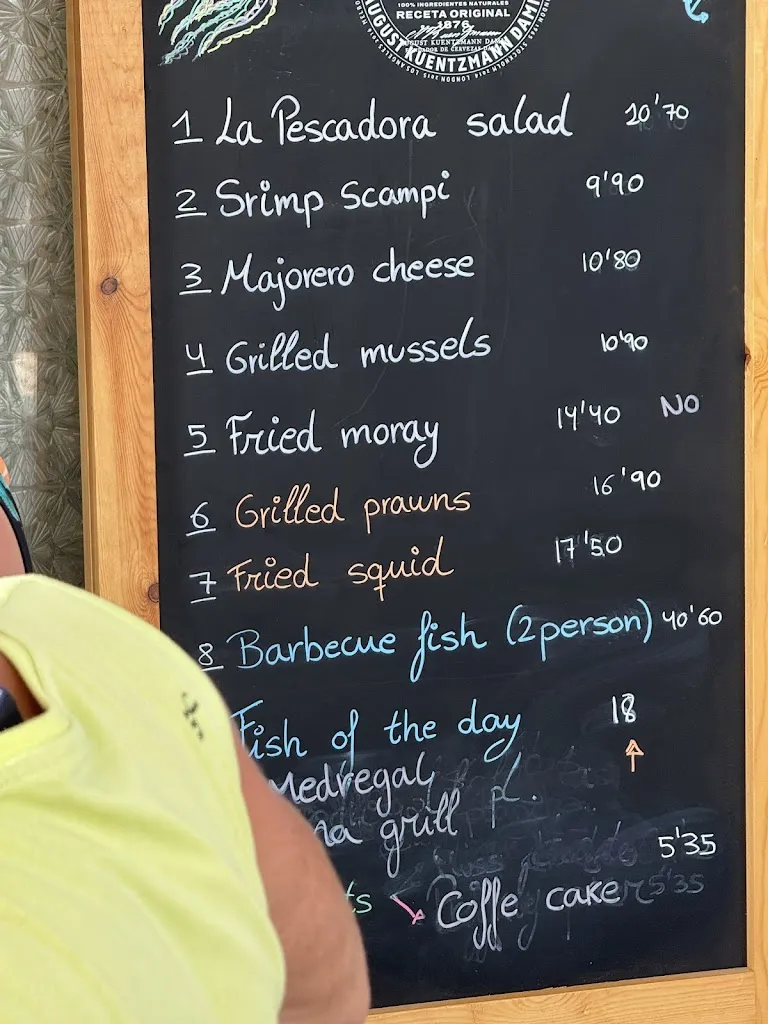 100% INGREDIENTES NATURALES
RECETA ORIGINAL
1876
AUGUST KUENTZMANN DAMM
1 La Pescadora salad 10'70
2 Srimp Scampi 9'90
3 Majorero cheese 10'80
4 Grilled mussels 10'90
5 Fried moray 14'40 NO
6 Grilled prawns 16'90
7 Fried squid 17'50
8 Barbecue fish (2 person) 40'60
Fish of the day 18
Medregal
grill
5'35
Coffe cake 5'35